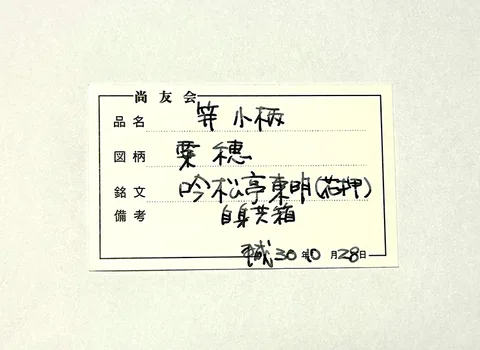 尚友会
品名 笄 小柄
図柄 粟穂
銘文 吟松亭東明(花押)
備考 自身共箱
平成30年10月28日